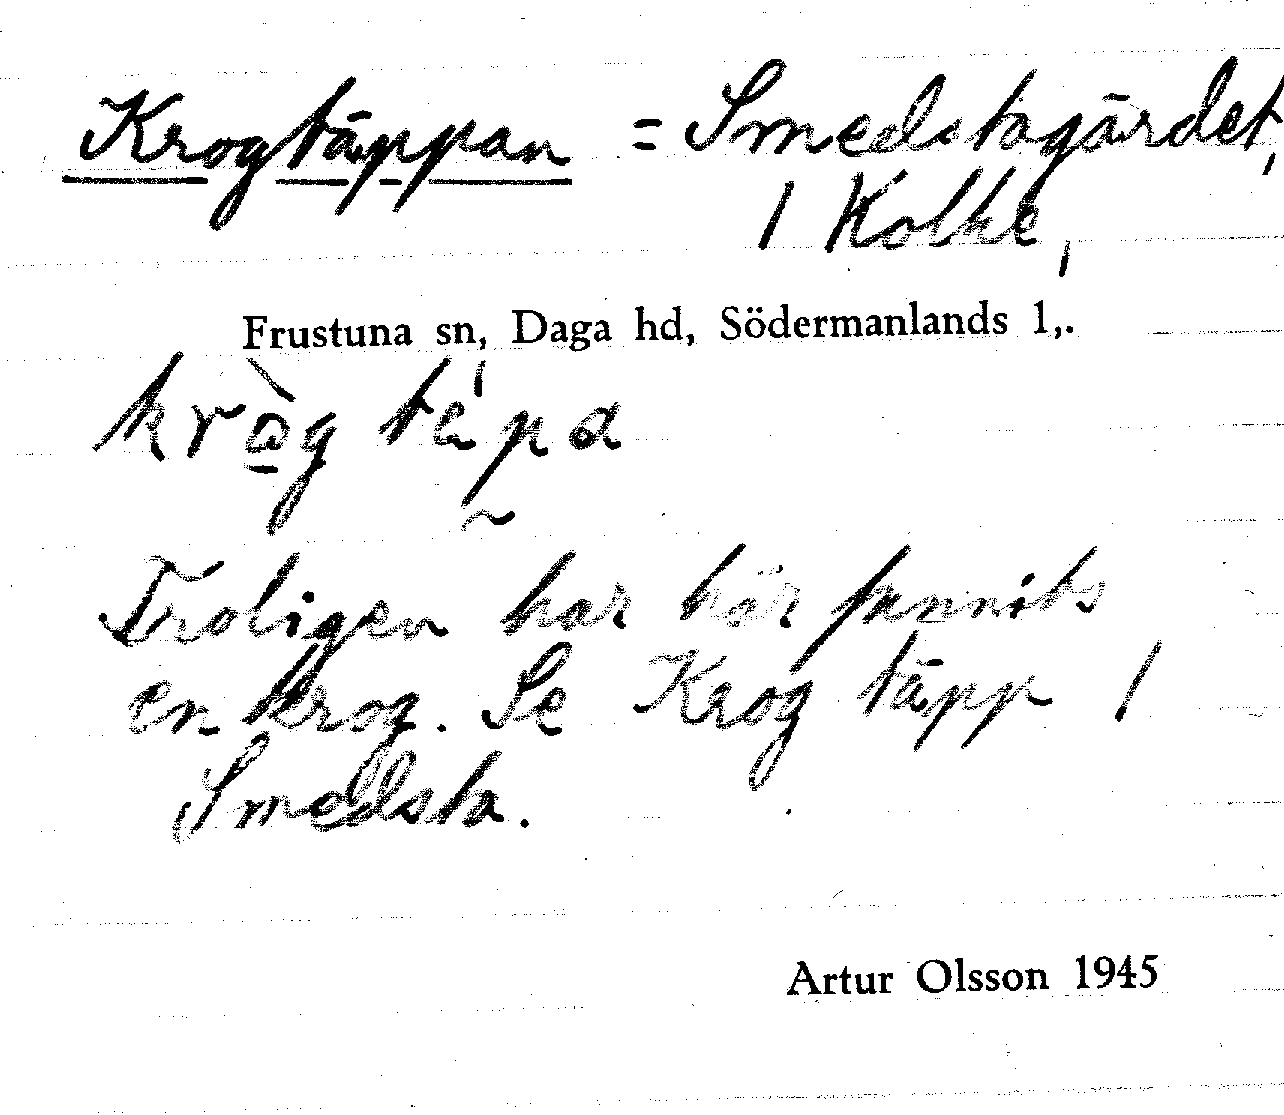 Krogtäppan = Smedstagärdet,
1 Kolke,
Frustuna sn, Daga hd, Södermanlands l,.
kròg tépa
Troligen har här funnits
en krog. Se Krog täpp 1
Smedsta.
Artur Olsson 1945